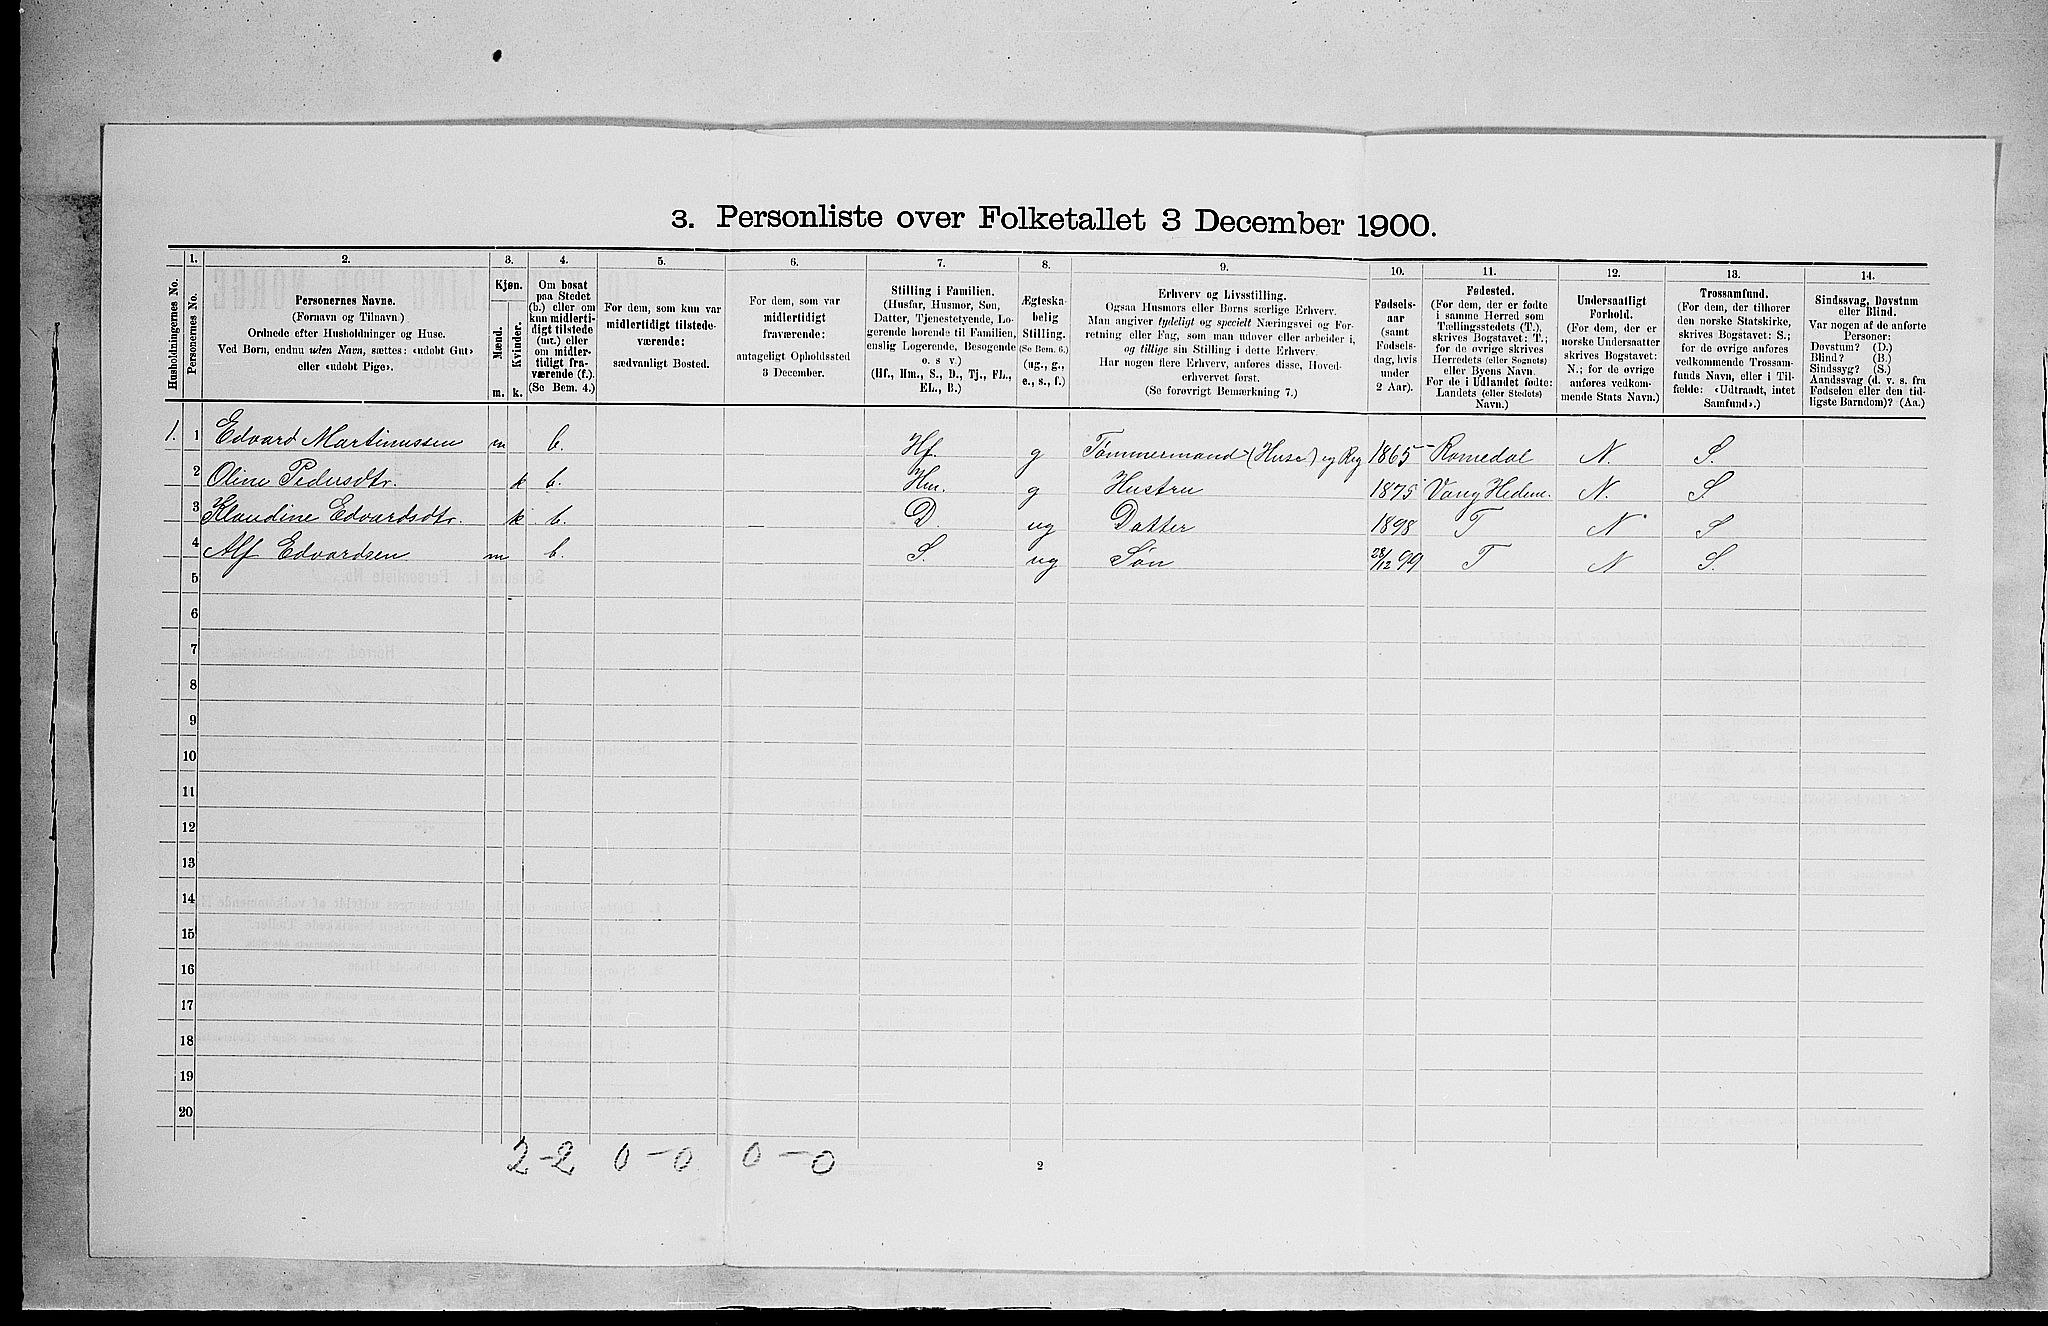 3. Personliste over Folketallet 3 December 1900.
Husholdningernes No.
1.
Personernes No.
2.
Personernes Navne.
(Fornavn og Tilnavn.)
Ordnede efter Husholdninger og Huse.
Ved Børn, endnu uden Navn, sættes: «udøbt Gut»
eller «udøbt Pige».
3.
Kjøn.
Mænd.
Kvinder.
m. k.
4.
Om bosat
paa Stedet
(b.) eller om
kun midlerti-
digt tilstede
(mt.) eller
om midler-
tidigt fra-
værende (f.).
(Se Bem. 4.)
5.
For dem, som kun var
midlertidigt tilstede-
værende:
sædvanligt Bosted.
6.
For dem, som var
midlertidigt
fraværende:
antageligt Opholdssted
3 December.
7.
Stilling i Familien.
(Husfar, Husmor, Søn,
Datter, Tjenestetyende, Lo-
gerende hørende til Familien,
enslig Logerende, Besøgende
o. s v.)
(Hf., Hm., S., D., Tj., FL.,
EL., B.)
8.
Ægteska-
belig
Stilling.
(Se Bem. 6.)
(ug., g.,
e., s., f.)
9.
Erhverv og Livsstilling.
Ogsaa Husmors eller Børns særlige Erhverv.
Man angiver tydeligt og specielt Næringsvei og For-
retning eller Fag, som man udøver eller arbeider i,
og tillige sin Stilling i dette Erhverv.
Har nogen flere Erhverv, anføres disse, Hoved-
erhvervet først.
(Se forøvrigt Bemærkning 7.)
10.
Fødsels-
aar
(samt
Fødsels-
dag, hvis
under
2 Aar).
11.
Fødested.
(For dem, der er fødte
i samme Herred som
Tællingsstedets (T.),
skrives Bogstavet: T.;
for de øvrige skrives
Herredets (eller Sognets)
eller Byens Navn.
For de i Udlandet fødte:
Landets (eller Stedets)
Navn.)
12.
Undersaatligt
Forhold.
(For dem, der er
norske Undersaatter
skrives Bogstavet:
N.; for de øvrige
anføres vedkom-
mende Stats Navn.)
13.
Trossamfund.
(For dem, der tilhører
den norske Statskirke,
skrives Bogstavet: S.;
for de øvrige anføres
vedkommende Trossam-
funds Navn, eller i Til-
fælde: «Udtraadt, intet
Samfund».)
14.
Sindssvag, Døvstum
eller Blind.
Var nogen af de anførte
Personer:
Døvstum? (D.)
Blind? (B.)
Sindssyg? (S.)
Aandssvag (d. v. s. fra
Fødselen eller den tid-
ligste Barndom)? (Aa.)
1. 1 Edvard Martinussen m b. Hf. g Tømmermand (Huse) og Reg 1865 Romedal N. S.
2 Oline Pedersdtr. k b. Hm. g Hustru 1875 Vang Hedem. N. S.
3 Klaudine Edvardsdtr. k. b. — D. ug Datter 1898 T N S
4 Alf Edvardsen m b. S. ug Søn 28/12 99 T N S.
5
6
7
8
9
10
11
12
13
14
15
16
17
18
19
20
2-2 0-0 0-0
2